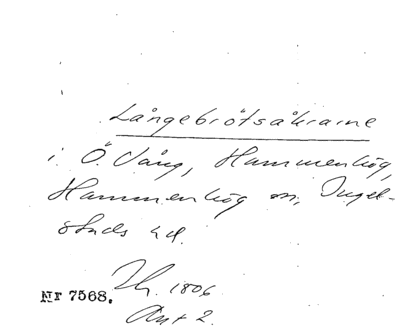 Långebrötsåkrarne
i Ö. Vång, Hammenhög,
Hammenhög sn, Ingel-
stads hd.
Nr 7568.
1806
Akt 2.